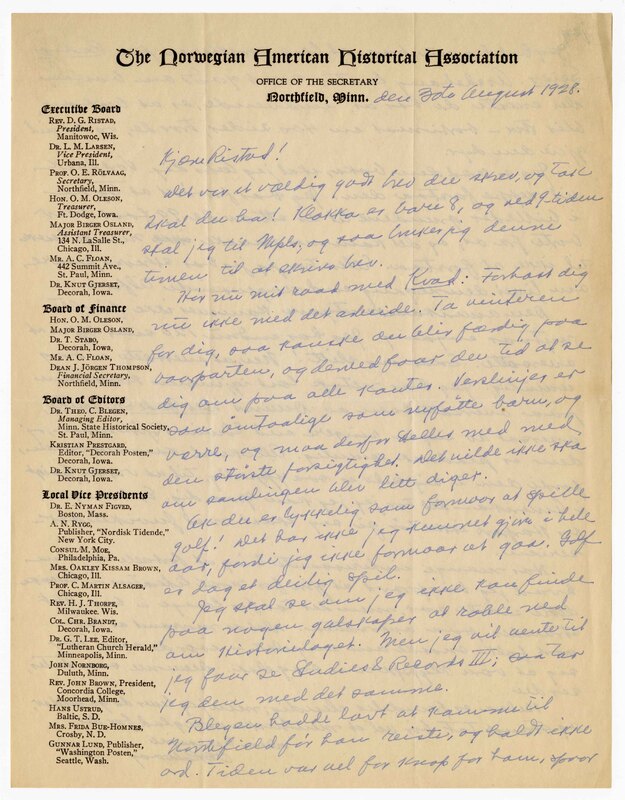 The Norwegian American Historical Association
OFFICE OF THE SECRETARY
Northfield, Minn. den 30te August 1928.
Executive Board
REV. D. G. RISTAD,
President,
Manitowoc, Wis.
DR. L. M. LARSEN,
Vice President,
Urbana, Ill.
PROF. O. E. RÖLVAAG,
Secretary,
Northfield, Minn.
HON. O. M. OLESON,
Treasurer,
Ft. Dodge, Iowa.
MAJOR BIRGER OSLAND,
Assistant Treasurer,
134 N. LaSalle St.,
Chicago, Ill.
MR. A. C. FLOAN,
442 Summit Ave.,
St. Paul, Minn.
DR. KNUT GJERSET,
Decorah, Iowa.
Board of Finance
HON. O. M. OLESON,
MAJOR BIRGER OSLAND,
DR. T. STABO,
Decorah, Iowa.
MR. A. C. FLOAN,
DEAN J. JÖRGEN THOMPSON,
Financial Secretary,
Northfield, Minn.
Board of Editors
DR. THEO. C. BLEGEN,
Managing Editor,
Minn. State Historical Society,
St. Paul, Minn.
KRISTIAN PRESTGARD,
Editor, "Decorah Posten,"
Decorah, Iowa.
DR. KNUT GJERSET,
Decorah, Iowa.
Local Vice Presidents
DR. E. NYMAN FIGVED,
Boston, Mass.
A. N. RYGG,
Publisher, "Nordisk Tidende,"
New York City.
CONSUL M. MOE,
Philadelphia, Pa.
MRS. OAKLEY KISSAM BROWN,
Chicago, Ill.
PROF. C. MARTIN ALSAGER,
Chicago, Ill.
REV. H. J. THORPE,
Milwaukee. Wis.
COL. CHR. BRANDT,
Decorah, Iowa.
DR. G. T. LEE, Editor,
"Lutheran Church Herald,"
Minneapolis, Minn.
JOHN NORNBORG,
Duluth, Minn.
REV. JOHN BROWN, President,
Concordia College,
Moorhead, Minn.
HANS USTRUD,
Baltic, S. D.
MRS. FRIDA BUE-HOMNES,
Crosby, N. D.
GUNNAR LUND, Publisher,
"Washington Posten,"
Seattle, Wash.
Kjære Ristad!
Det var et vældig godt brev du skrev, og tak
skal du ha! Klokka er bare 8, og ved 9 tiden
skal jeg til Mpls, og saa bruker jeg denne
timen til at skrive brev.
Hör nu mit raad med Kvad: Forhast dig
nu ikke med det arbeide. Ta vinteren
for dig, saa kanske du blir færdig paa
vaarparten, og derved faar du tid at se
dig om paa alle kanter. Verslinjer er
saa ömtaalige som nyfötte barn, og
værre, og maa derfor stelles med med
den störste forsigtighet. Det vilde ikke ska
om samlingen blev litt diger.
Ak du er lykkelig som formaar at spille
golf! Det har ikke jeg kunnet gjöre i hele
aar, fordi jeg ikke formaar at gaa. Golf
er da et deilig spil.
Jeg skal se om jeg ikke kan finde
paa nogen galskaper at rable ned
om Historielaget. Men jeg vil vente til
jeg faar se Studies & Records III; saa tar
jeg den med det samme.
Blegen hadde lovt at komme til
Northfield för han reiste, og holdt ikke
ord. Tiden var vel for knap for ham, spör